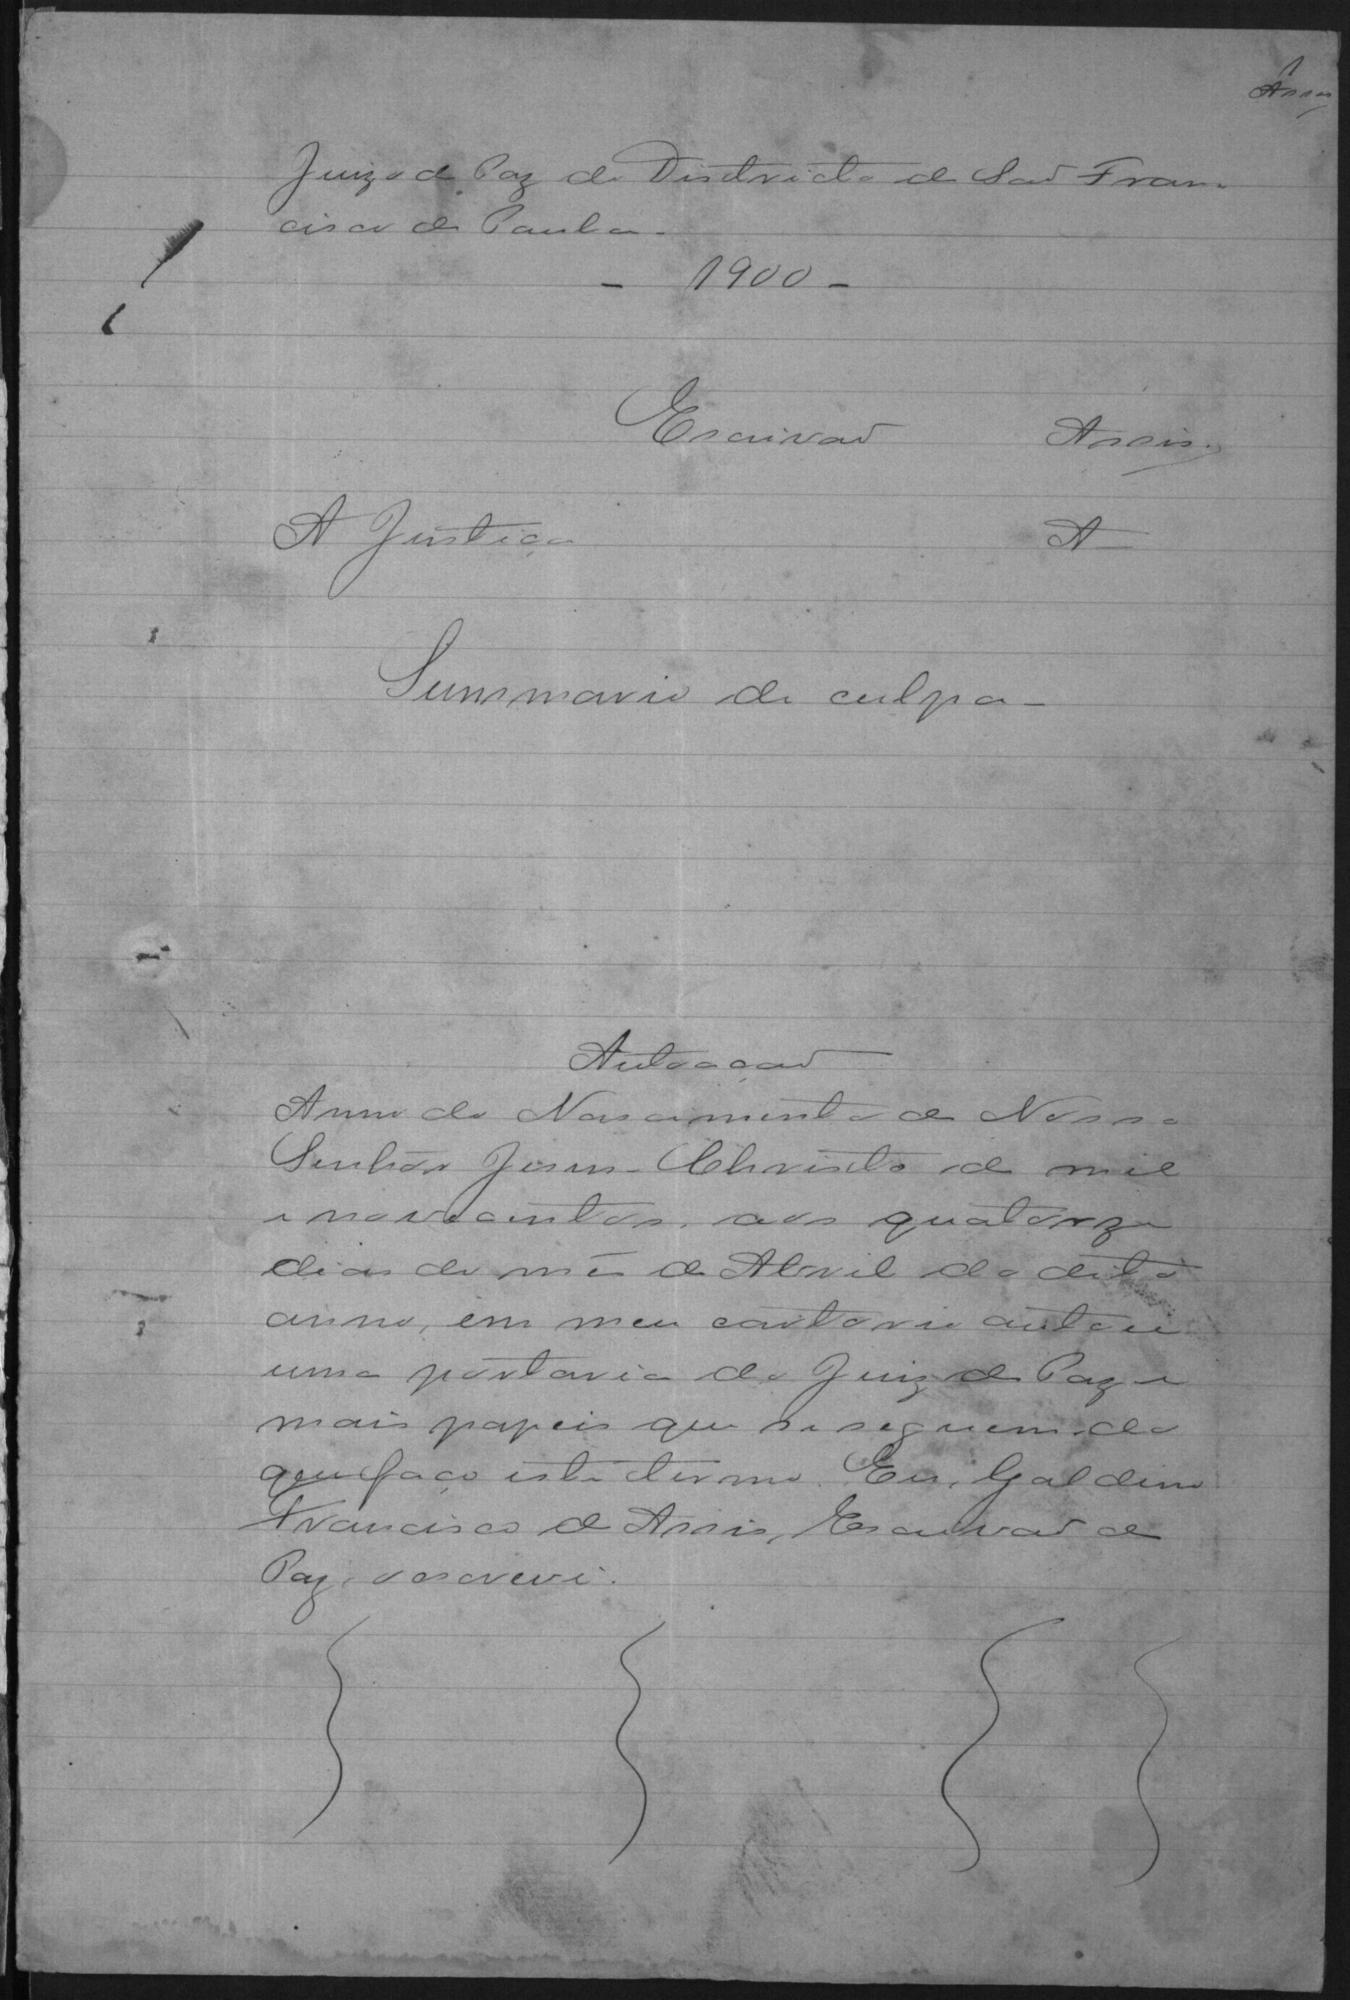 1
Assis
Juizo de Paz do Districto de São Fran-
cisco de Paula.
- 1900 -
Escrivão Assis.
A Justiça A
Summario de culpa -
Autoação
Anno do Nascimento de Nosso
Senhor Jesus-Christo de mil
e novecentos, aos quatorze
dias do mês de Abril do dito
anno, em meu cartorio autoei
uma portaria do Juiz de Paz e
mais papeis que se seguem, do
que faço este termo. Eu, Galdino
Francisco de Assis, Escrivão de
Paz, o escrevi.